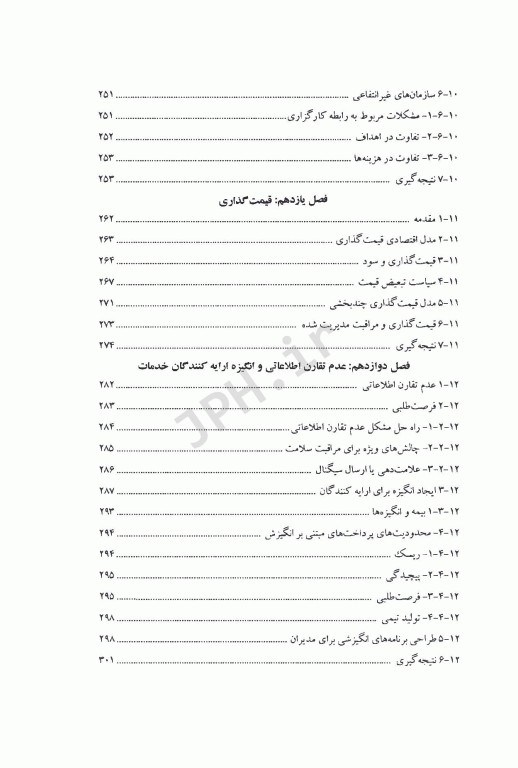 ۱۰-۶ سازمان‌های غیرانتفاعی ........ ۲۵۱
۱۰-۶-۱- مشکلات مربوط به رابطه کارگزاری ........ ۲۵۱
۱۰-۶-۲- تفاوت در اهداف ........ ۲۵۲
۱۰-۶-۳- تفاوت در هزینه‌ها ........ ۲۵۳
۱۰-۷ نتیجه‌گیری ........ ۲۵۳
فصل یازدهم: قیمت‌گذاری
۱۱-۱ مقدمه ........ ۲۶۲
۱۱-۲ مدل اقتصادی قیمت‌گذاری ........ ۲۶۳
۱۱-۳ قیمت‌گذاری و سود ........ ۲۶۴
۱۱-۴ سیاست تبعیض قیمت ........ ۲۶۷
۱۱-۵ مدل قیمت‌گذاری چندبخشی ........ ۲۷۱
۱۱-۶ قیمت‌گذاری و مراقبت مدیریت شده ........ ۲۷۳
۱۱-۷ نتیجه‌گیری ........ ۲۷۴
فصل دوازدهم: عدم تقارن اطلاعاتی و انگیزه ارایه کنندگان خدمات
۱۲-۱ عدم تقارن اطلاعاتی ........ ۲۸۲
۱۲-۲ فرصت‌طلبی ........ ۲۸۳
۱۲-۲-۱- راه حل مشکل عدم تقارن اطلاعاتی ........ ۲۸۴
۱۲-۲-۲- چالش‌های ویژه برای مراقبت سلامت ........ ۲۸۵
۱۲-۲-۳- علامت‌دهی یا ارسال سیگنال ........ ۲۸۶
۱۲-۳ ایجاد انگیزه برای ارایه کنندگان ........ ۲۸۷
۱۲-۳-۱ بیمه و انگیزه‌ها ........ ۲۹۳
۱۲-۴- محدودیت‌های پرداخت‌های مبتنی بر انگیزش ........ ۲۹۴
۱۲-۴-۱- ریسک ........ ۲۹۴
۱۲-۴-۲- پیچیدگی ........ ۲۹۵
۱۲-۴-۳- فرصت‌طلبی ........ ۲۹۵
۱۲-۴-۴- تولید تیمی ........ ۲۹۸
۱۲-۵ طراحی برنامه‌های انگیزشی برای مدیران ........ ۲۹۸
۱۲-۶ نتیجه‌گیری ........ ۳۰۱
JPH.ir